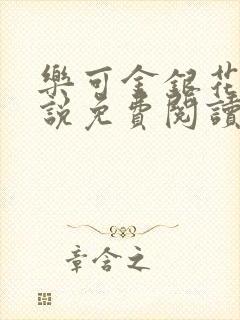 樂可金銀花
說免費閱讀
章含之